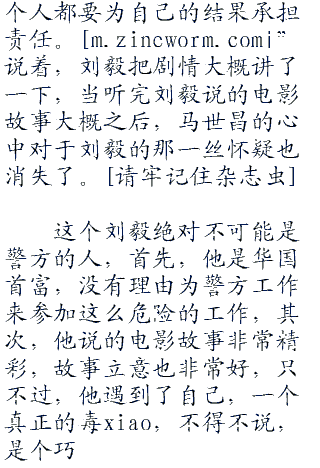 个人都要为自己的结果承担
责任。[m.zincworm.com¡”
说着，刘毅把剧情大概讲了
一下，当听完刘毅说的电影
故事大概之后，马世昌的心
中对于刘毅的那一丝怀疑也
消失了。[请牢记住杂志虫]
这个刘毅绝对不可能是
警方的人，首先，他是华国
首富，没有理由为警方工作
来参加这么危险的工作，其
次，他说的电影故事非常精
彩，故事立意也非常好，只
不过，他遇到了自己，一个
真正的毒xiao，不得不说，
是个巧